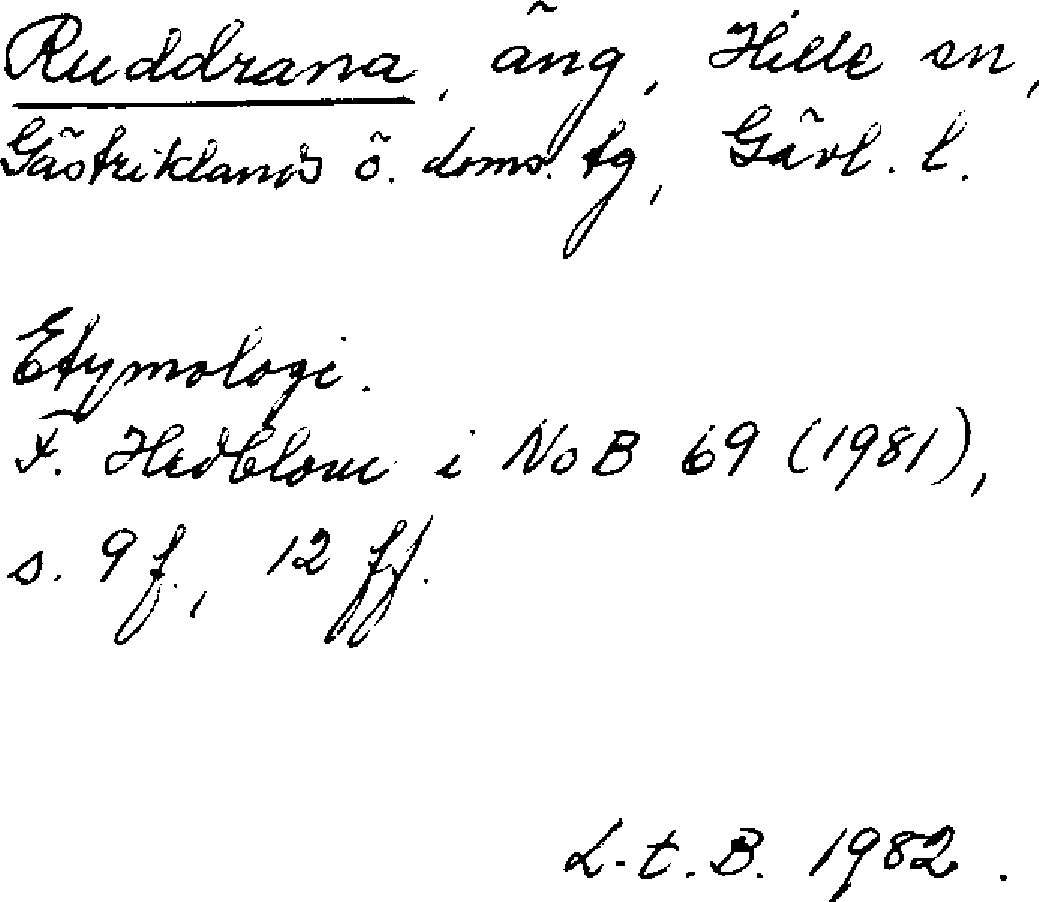 Ruddrana, äng, Hille sn,
Gästriklands ö. doms. tg, Gävl. l.
Etymologi.
F. Hedblom i NoB 69 (1981),
s. 9 f., 12 ff.
L-t. B. 1982.